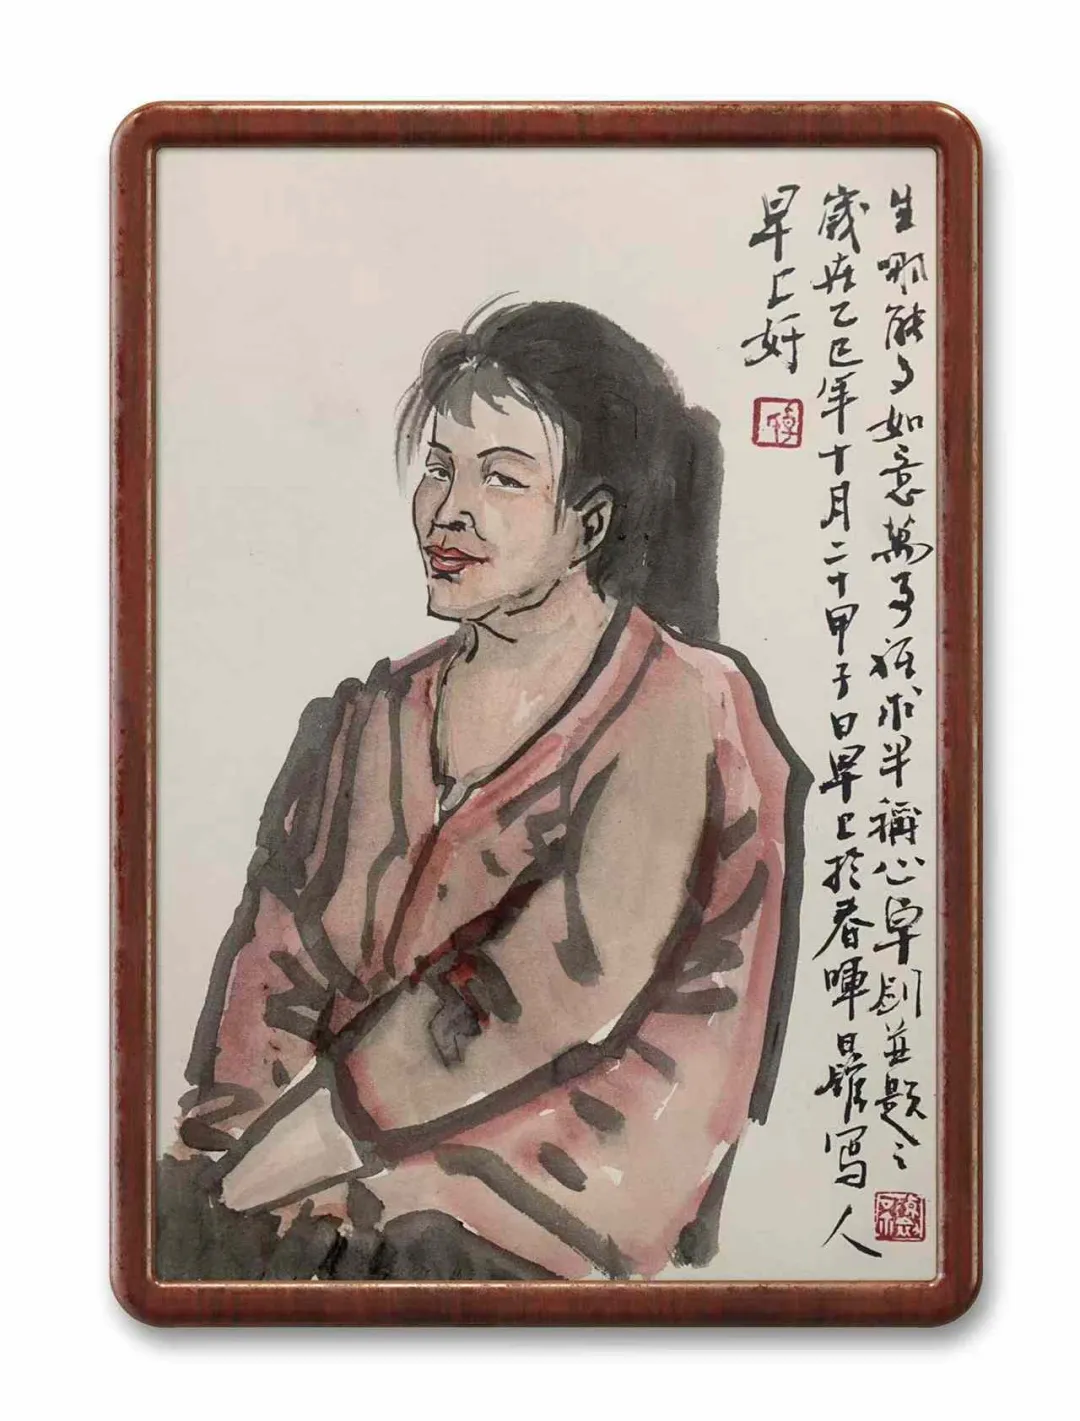 生哪能事如意萬事祇求半稱心卓剛並題之
歲在乙巳年十月二十甲子日早上於春暉日課写人
早上好